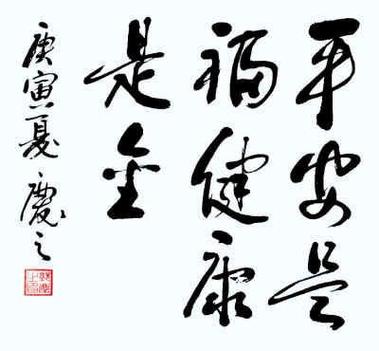 平安是
福健康
是金
庚寅夏慶之